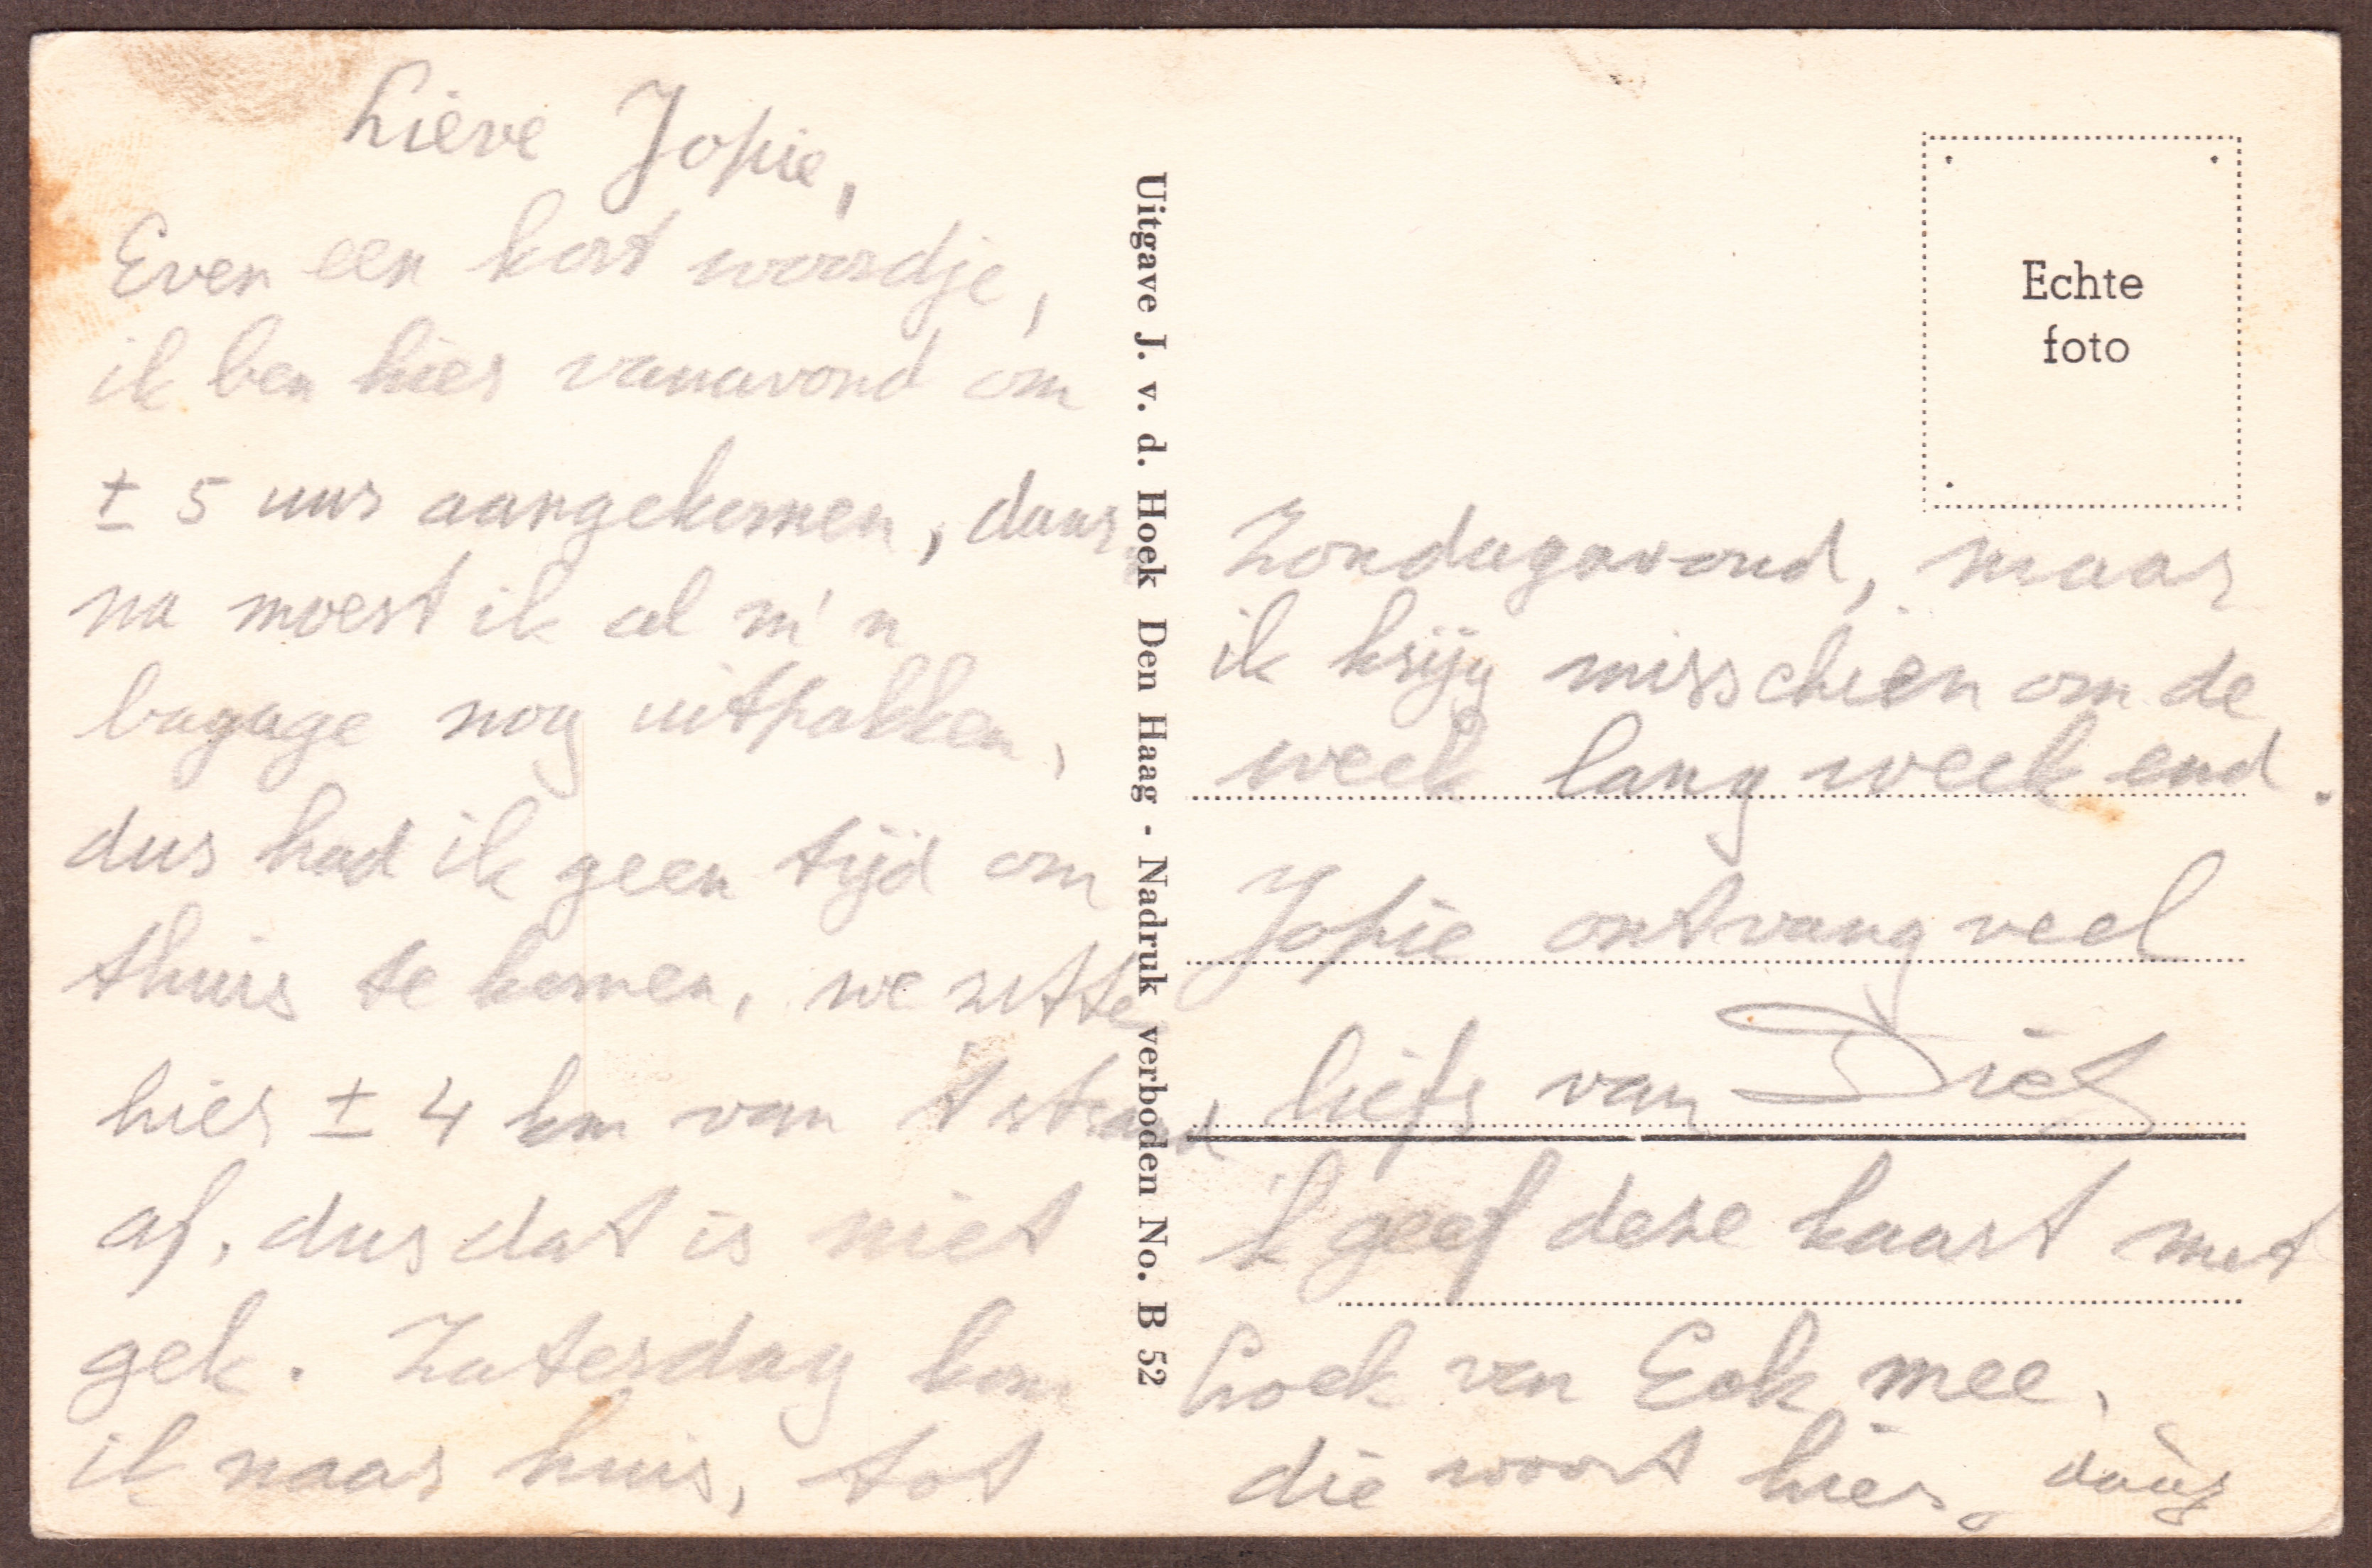 Lieve Jopie,
Even een kort woordje,
ik ben hier vanavond om
± 5 uur aangekomen, daar
na moest ik al m'n
bagage nog uitpakken,
dus had ik geen tijd om
thuis te komen, we zitte
hier ± 4 km van 't strand
af, dus dat is niet
gek. Zaterdag kom
ik naar huis, tot
Uitgave J. v. d. Hoek Den Haag - Nadruk verboden No. B 52
Echte
foto
Zondagavond, maar
ik krijg misschien om de
week lang week end.
Jopie ontvang veel
liefs van Diet
'k geef deze kaart met
Loek van Eck mee,
die woont hier, daág